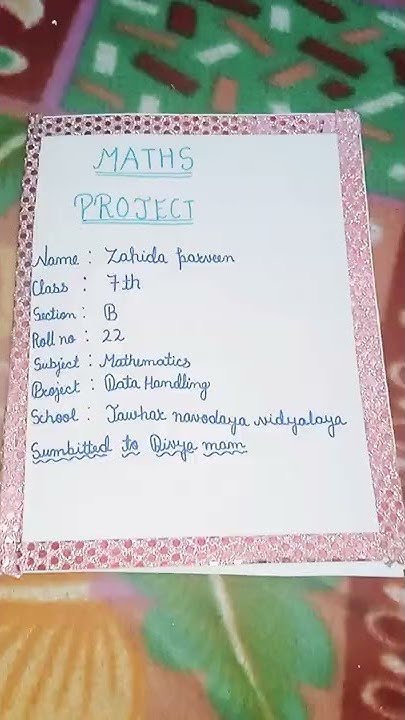 MATHS
PROJECT
Name : Zahida parveen
Class : 7th
Section : B
Roll no : 22
Subject : Mathematics
Project : Data Handling
School : Jawhar navodaya vidyalaya
Sumbitted to Divya mam